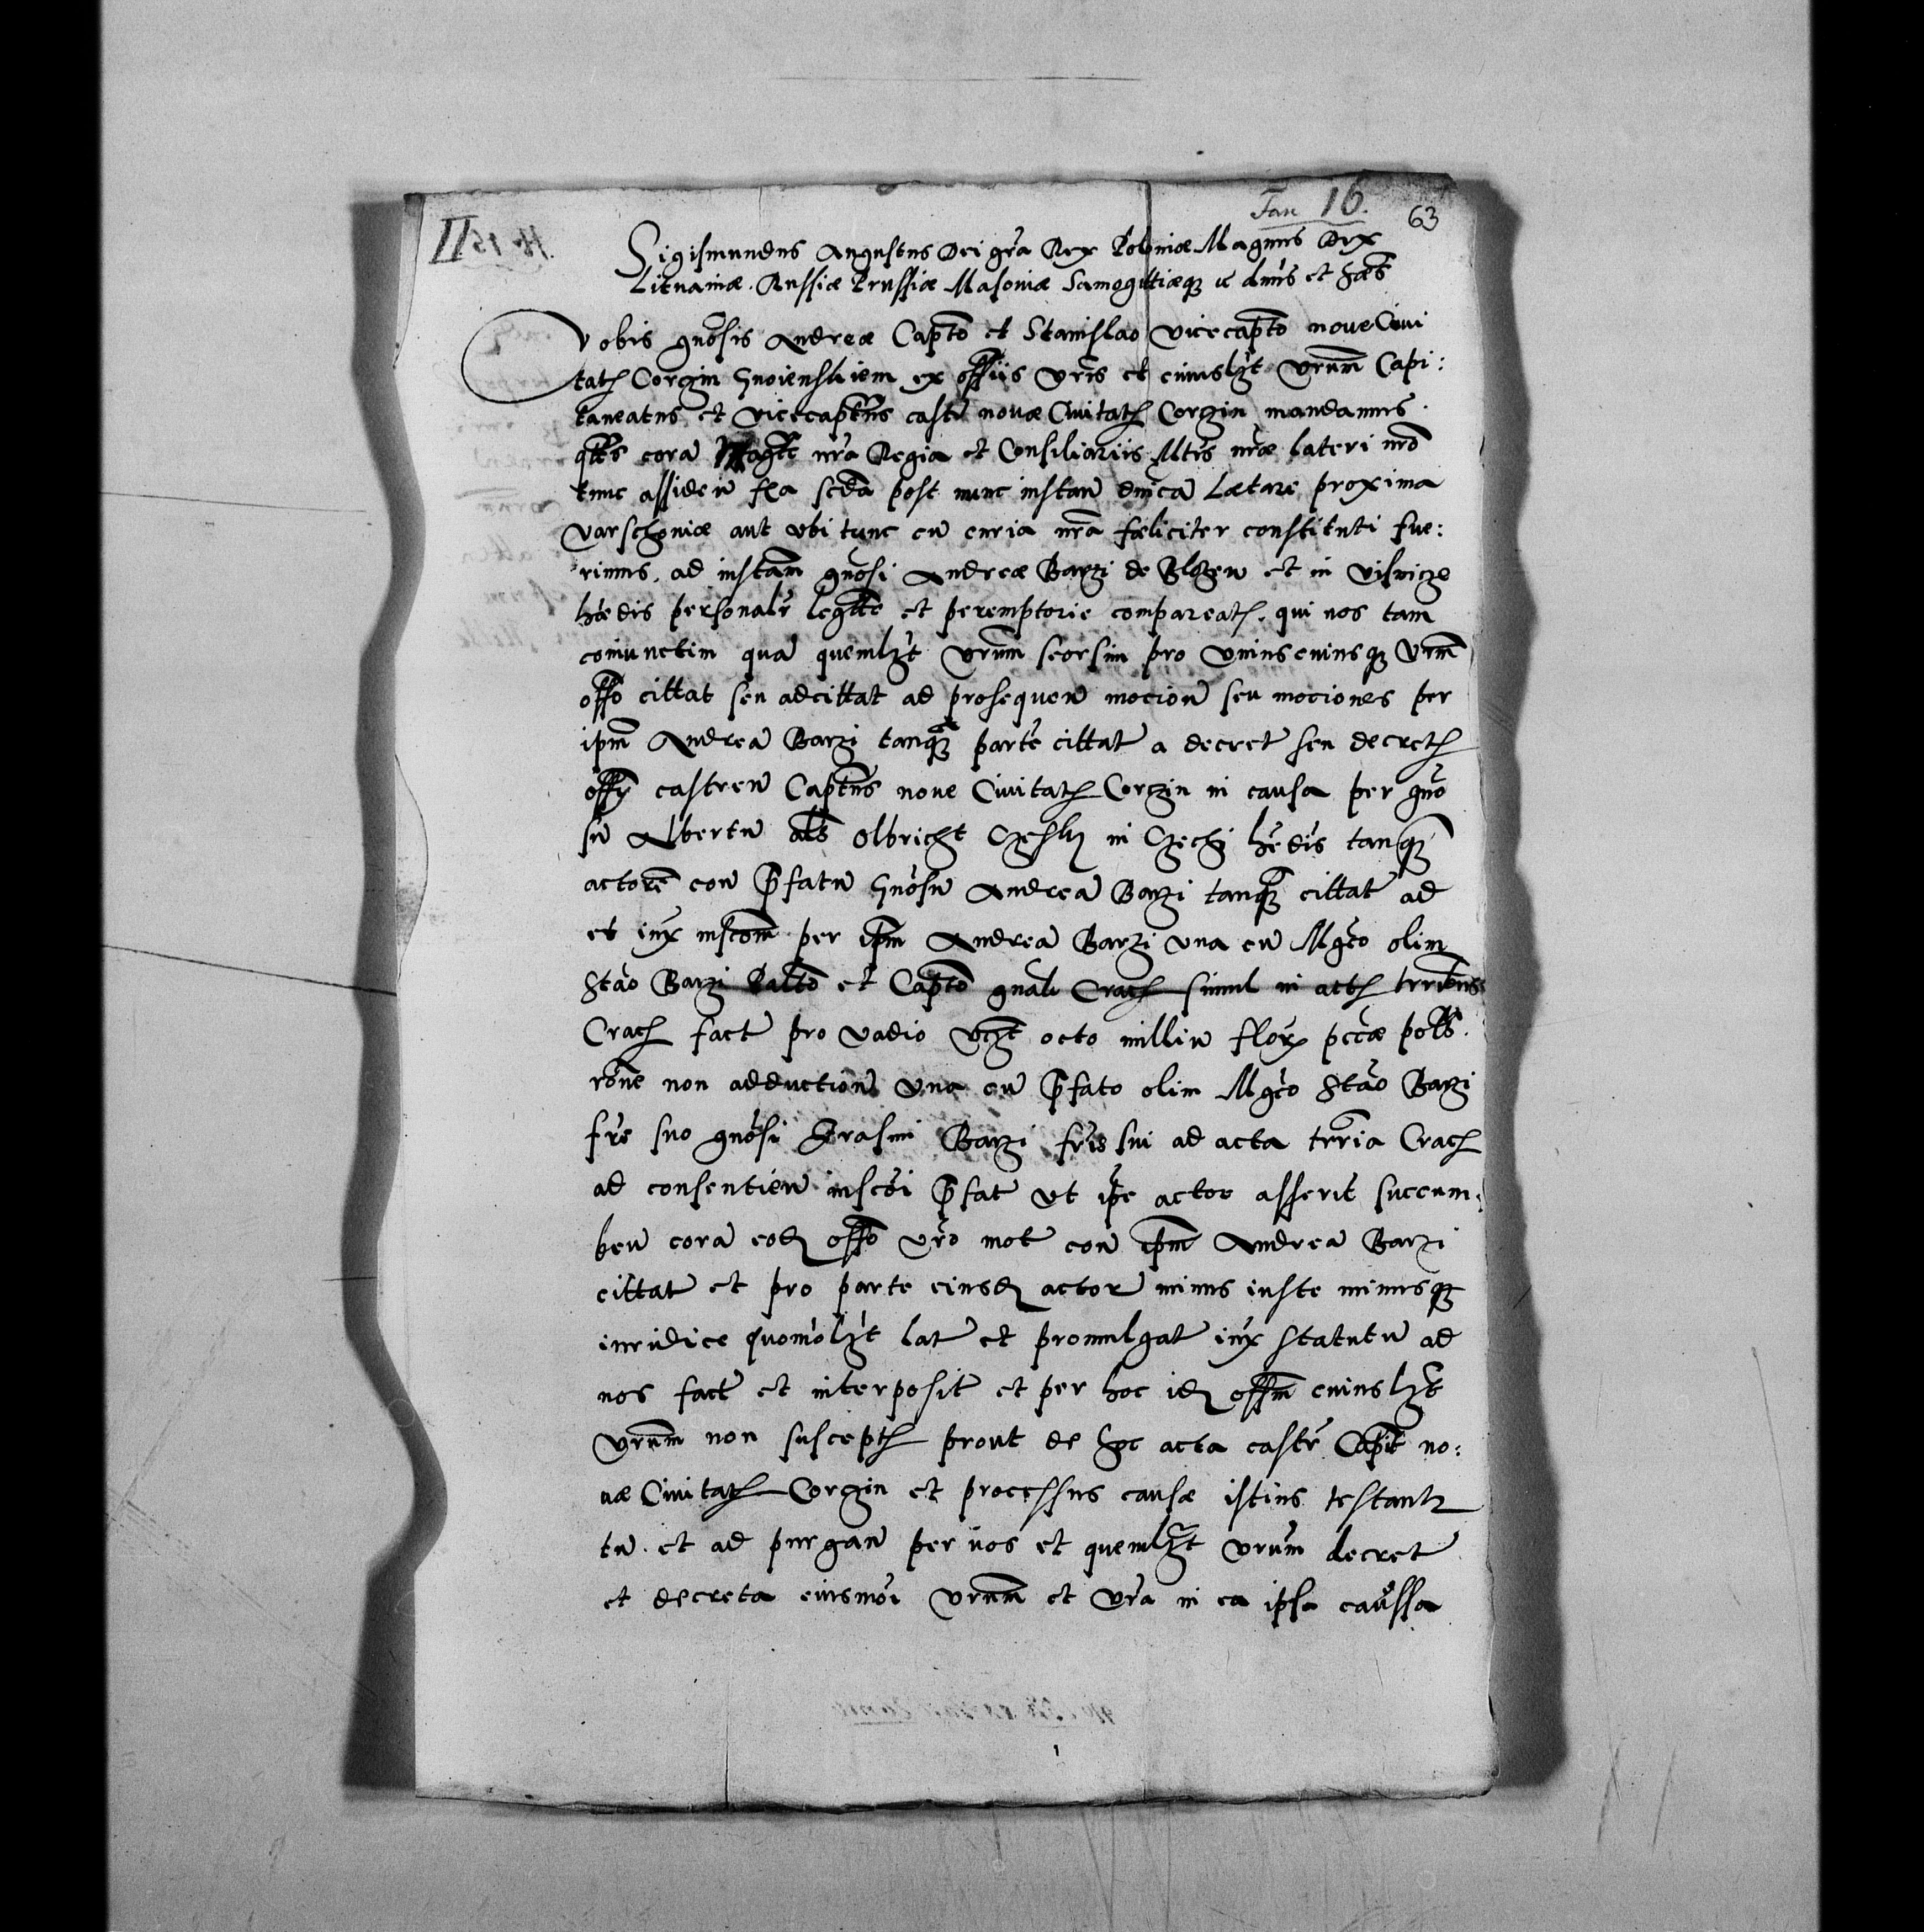 II
Jan 16.
63
Sigismundus Augustus Dei gra Rex Poloniæ Magnus Dux
Lituaniæ. Russiæ Prussiæ Masoviæ Samogittiæq₃ &c dnus et hæs
Vobis gnosis Andreæ Capto et Stanislao vicecapto noue Ciui
tatis Corzin Gnoienskiem ex offiis vris et cuiuslzt vrum Capi:
taneatus et vicecaptus castr novæ Civitatis Corzin mandamus.
qtts cora Magte nra Regia et Consiliariis Mtis nræ lateri nro
tunc assiden fra scda post nunc instan dnica Lætare proxima
Varschoviæ aut vbi tunc cu curia nra fæliciter constituti fue:
rimus. ad instam gnosi Andreæ Barzi de et in Visnicze
hædis personalr legtte et peremptorie compareatis. qui nos tam
coniunctim qua quemlzt vrum seorsim pro vnius cuiusq₃ vrum
offo cittat seu adcittat ad prosequen mocion seu mociones per
ipm Andrea Barzi tanq₃ parte cittat a decret seu decretis
offy castren Captus noue Civitatis Corzin in causa per gno
su Albertu als Olbricht in hedis tanq₃
actore con p̄fatu Gnosu Andrea Barzi tanq₃ cittat ad
et iux inscom per ipm Andrea Barzi vna cu Mgco olim
Stao Barzi Palto et Capto gnali Crac simul in actis trribus
Crac fact pro vadio vzt octo milliu flor pccæ polls.
rone non adduction vna cu p̄fato olim Mgco Stao Barzi
fre suo gnosi Erasmi Barzi fris sui ad acta trria Crac
ad consentien inscoi p̄fat vt ipe actor asserit succum:
ben cora eod offo vro mot con ipm Andrea Barzi
cittat et pro parte eiusd actor minus iuste minusq₃
iuridice quomolzt lat et promulgat iux statutu ad
nos fact et interposit et per hoc id offm cuiuslzt
vrum non susceptis prout de hoc acta castr Capit no:
uæ Civitatis Corzin et processus causæ istius testantr
tu. et ad purgan per vos et quemlzt vrum decret
et decreta eiusmoi vrum et vra in ea ipsa caussa